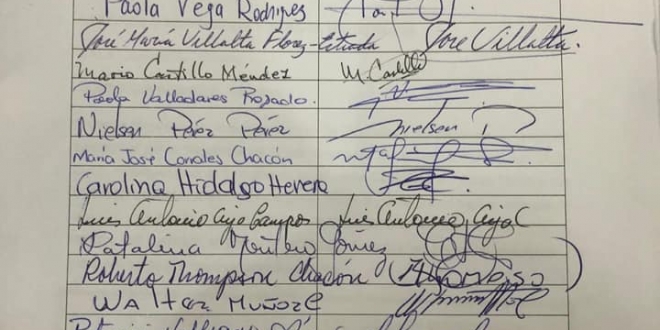 Paola Vega Rodríguez
José María Villalta Florez-Estrada José Villalta.
Mario Castillo Méndez M. Castillo
Paola Valladares Rosado.
Nielsen Pérez Pérez Nielsen P
María José Corrales Chacón
Carolina Hidalgo Herrera
Luis Antonio Aiza Campos Luis Antonio Aiza C
Catalina Montero Gómez
Roberto Thompson Chacón
Walter Muñoz